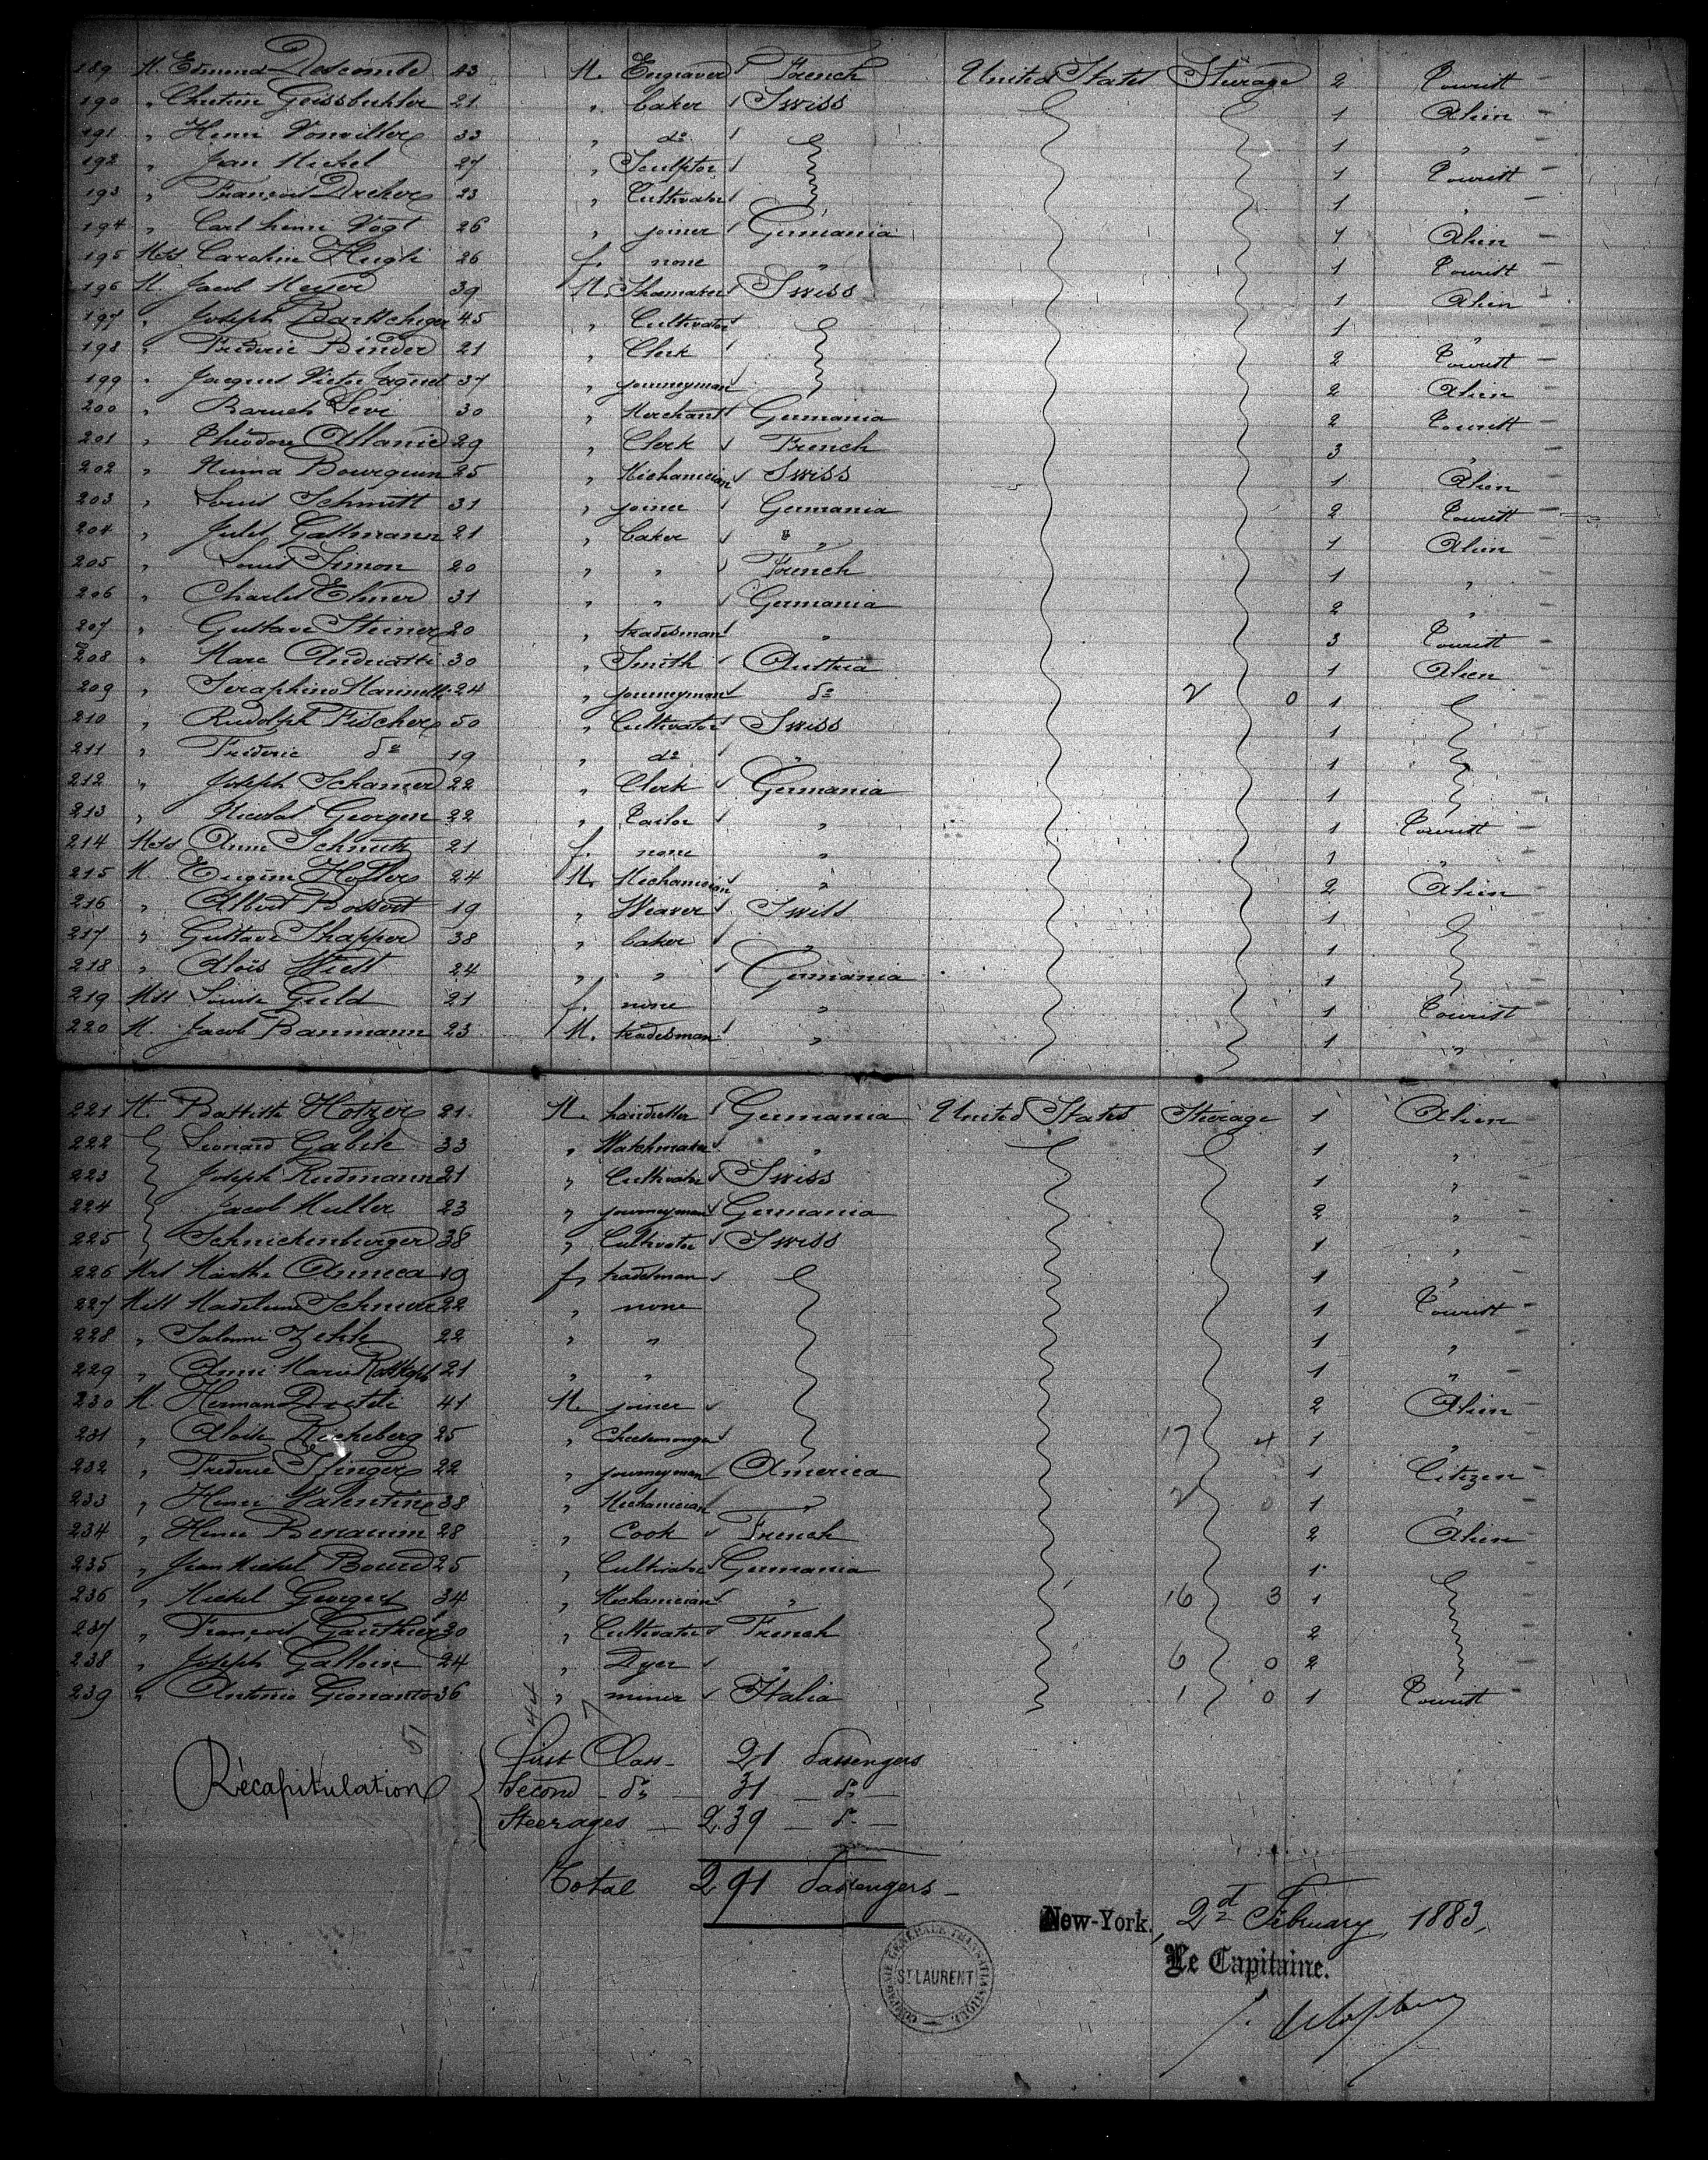 189 M. Edmond Descombe 43 M. Engraver French United States Steerage 2 Tourist
190 „ Chretien Geissbuhler 21 „ baker Swiss 1 Alien
191 „ Henri Vonwiller 33 „ do 1 „
192 „ Jean Michel 27 „ Sculptor 1 Tourist
193 „ François Dreher 23 „ Cultivator 1 „
194 „ Carl Henri Vogt 26 „ joiner Germania 1 Alien
195 Miss Caroline Hugli 26 f. none „ 1 Tourist
196 M. Jacob Meyer 39 M. Shomaker Swiss 1 Alien
197 „ Joseph 45 „ Cultivator 1 „
198 „ Frederic Binder 21 „ Clerk 2 Tourist
199 „ Jacques Victor 37 „ journeyman 2 Alien
200 „ Baruch Levi 30 „ Merchant Germania 2 Tourist
201 „ Théodore Allanic 29 „ Clerk French 3 „
202 „ Numa Bourquin 25 „ Mechanician Swiss 1 Alien
203 „ Louis Schmitt 31 „ joiner Germania 2 Tourist
204 „ Jules Gattmann 21 „ baker „ 1 Alien
205 „ Louis Simon 20 „ „ French 1 „
206 „ Charles Elmer 31 „ „ Germania 2 „
207 „ Gustave Steiner 20 „ tradesman „ 3 Tourist
208 „ Marc Andreatti 30 „ Smith Austria 1 Alien
209 „ Seraphino Marinelli 24 „ journeyman do 2 0 1
210 „ Rudolph Fischer 50 „ Cultivator Swiss 1
211 „ Frederic do 19 „ do „ 1
212 „ Joseph Schamer 22 „ Clerk Germania 1
213 „ Nicolas Georgen 22 „ Tailor „ 1 Tourist
214 Miss Anne Schmitt 21 f. none „ 1 „
215 M. Eugène 24 M. Mechanician „ 2 Alien
216 „ Albert Bossert 19 „ Weaver Swiss 1
217 „ Gustave Shapper 38 „ baker „ 1
218 „ Aloïs 24 „ „ Germania 1
219 Miss Louise Guld 21 f. none „ 1 Tourist
220 M. Jacob Banmann 23 M. tradesman „ 1 „
221 M. Battiste Hotzer 21 M. Germania United States Steerage 1 Alien
222 Leonard Gabile 33 „ Watchmaker „ 1 „
223 Joseph Rudmann 21 „ Cultivator Swiss 1 „
224 Jacob Muller 23 „ journeyman Germania 2 „
225 Schnickenburger 38 „ Cultivator Swiss 1 „
226 Mrs Marthe 19 f. tradesman 1 „
227 Miss Madeleine 22 „ none 1 Tourist
228 „ Salomé 22 „ „ 1 „
229 „ Anne Marie 21 „ „ 1 „
230 M. Herman 41 M. joiner 2 Alien
231 „ Rocheberg 25 „ Cheesemonger 17 4 1 „
232 „ Frederic 22 „ journeyman America 1 Citizen
233 „ Henri Valentine 38 „ Mechanician „ 2 0 1 „
234 „ Henri 28 „ Cook French 2 Alien
235 „ Jean Michel 25 „ Cultivator Germania 1
236 „ Michel Georges 34 „ Mechanician „ 16 3 1
237 „ François Gauthier 30 „ Cultivator French 2
238 „ Joseph Galloin 24 „ Dyer „ 6 0 2
239 „ Antonio 36 „ miner Italia 1 0 1 Tourist
51 44 7
Récapitulation
First Class 21 Passengers
Second do 31 do
Steerages 239 do
Total 291 Passengers
New-York, 2d February 1883,
Le Capitaine.
COMPAGNIE GENERALE TRANSATLANTIQUE
ST LAURENT